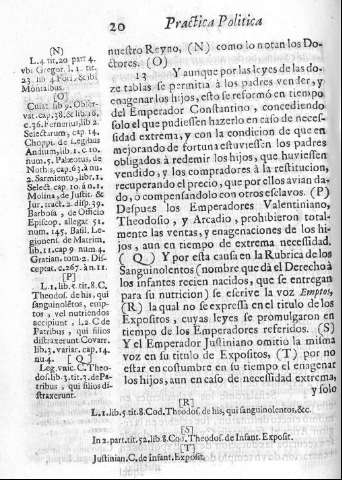 20 Practica Politica
nuestro Reyno, (N) como lo notan los Do-
ctores. (O)
13 Y aunque por las leyes de las do-
ze tablas se permitia à los padres vender, y
enagenar los hijos, esto se reformò en tiempo
del Emperador Constantino, concediendo
solo el que pudiessen hazerlo en caso de neces-
sidad extrema, y con la condicion de que en
mejorando de fortuna estuviessen los padres
obligados à redemir los hijos, que huviessen
vendido, y los compradores à la restitucion,
recuperando el precio, que por ellos avian da-
do, o compensandolo con otros esclavos. (P)
Despues los Emperadores Valentiniano,
Theodosio, y Arcadio, prohibieron total-
mente las ventas, y enagenaciones de los hi-
jos, aun en tiempo de extrema necessidad.
(Q) Y por esta causa en la Rubrica de los
Sanguinolentos (nombre que dà el Derecho à
los infantes recien nacidos, que se entregan
para su nutricion) se escrive la voz Emptos,
(R) la qual no se expressa en el titulo de los
Expositos, cuyas leyes se promulgaron en
tiempo de los Emperadores referidos. (S)
Y el Emperador Justiniano omitio la misma
voz en su titulo de Expositos, (T) por no
estar en costumbre en su tiempo el enagenar
los hijos, aun en caso de necessidad extrema,
y solo
(N)
L. 4. tit. 20. part. 4.
vbi Gregor. l. 1. tit.
23. lib. 4. Fori, & ibi
Montalbus.
[O]
Cuiac. lib. 9. Obser-
vat. cap. 38. & lib. 18.
c. 36. Fornerius, lib. 2.
Selectarum, cap. 14.
Choppi. de Legibus
Andium, lib. 1. c. 10.
num. 5. Palæotus, de
Noth. s, cap. 63. à nu.
2. Sarmiento, libr. 1.
Select. cap. 10. à n. 1.
Molina, de Justit. &
Jur. tract. 2. disp. 39.
Barbosa, de Officio
Episcop. allegat. 51.
num. 145. Basil. Le-
gionens. de Matrim.
lib. 11. cap. 9. num. 4.
Gratian. tom. 2. Dis-
ceptat. c. 267. à n. 11.
[P]
L. 1. lib. 5. tit. 8. C.
Theodos. de his, qui
sanguinolētos, emp-
tos, vel nutriendos
accipiunt, l. 2. C de
Patribus, qui filios
distraxerunt Covarr.
lib. 3. variar. cap. 14.
nu. 4. [Q]
Leg. vnic. C. Theo-
dos. lib. 3. tit. 3. de Pa-
tribus, qui filios dis-
traxerunt.
[R]
L. 1. lib. 5. tit. 8. Cod. Theodos. de his, qui sanguinolentos, &c.
[S]
In 2. part. tit. 52. lib. 8. Cod. Theodos. de Infant. Exposit.
[T]
Justinian. C. de Infant. Exposit.